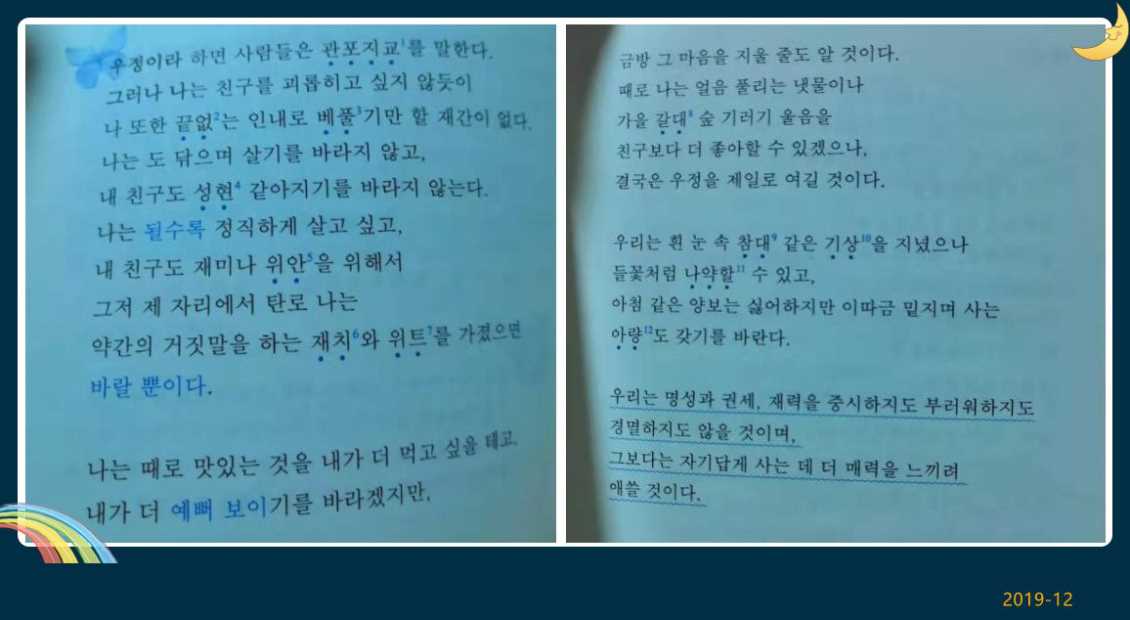 우정이라 하면 사람들은 관포지교¹를 말한다.
그러나 나는 친구를 괴롭히고 싶지 않듯이
나 또한 끝없²는 인내로 베풀³기만 할 재간이 없다.
나는 도 닦으며 살기를 바라지 않고,
내 친구도 성현⁴ 같아지기를 바라지 않는다.
나는 될수록 정직하게 살고 싶고,
내 친구도 재미나 위안⁵을 위해서
그저 제 자리에서 탄로 나는
약간의 거짓말을 하는 재치⁶와 위트⁷를 가졌으면
바랄 뿐이다.
나는 때로 맛있는 것을 내가 더 먹고 싶을 테고,
내가 더 예뻐 보이기를 바라겠지만,
금방 그 마음을 지울 줄도 알 것이다.
때로 나는 얼음 풀리는 냇물이나
가을 갈대⁸ 숲 기러기 울음을
친구보다 더 좋아할 수 있겠으나,
결국은 우정을 제일로 여길 것이다.
우리는 흰 눈 속 참대⁹ 같은 기상¹⁰을 지녔으나
들꽃처럼 나약할¹¹ 수 있고,
아첨 같은 양보는 싫어하지만 이따금 밑지며 사는
아량¹²도 갖기를 바란다.
우리는 명성과 권세, 재력을 중시하지도 부러워하지도
경멸하지도 않을 것이며,
그보다는 자기답게 사는 데 더 매력을 느끼려
애쓸 것이다.
2019-12